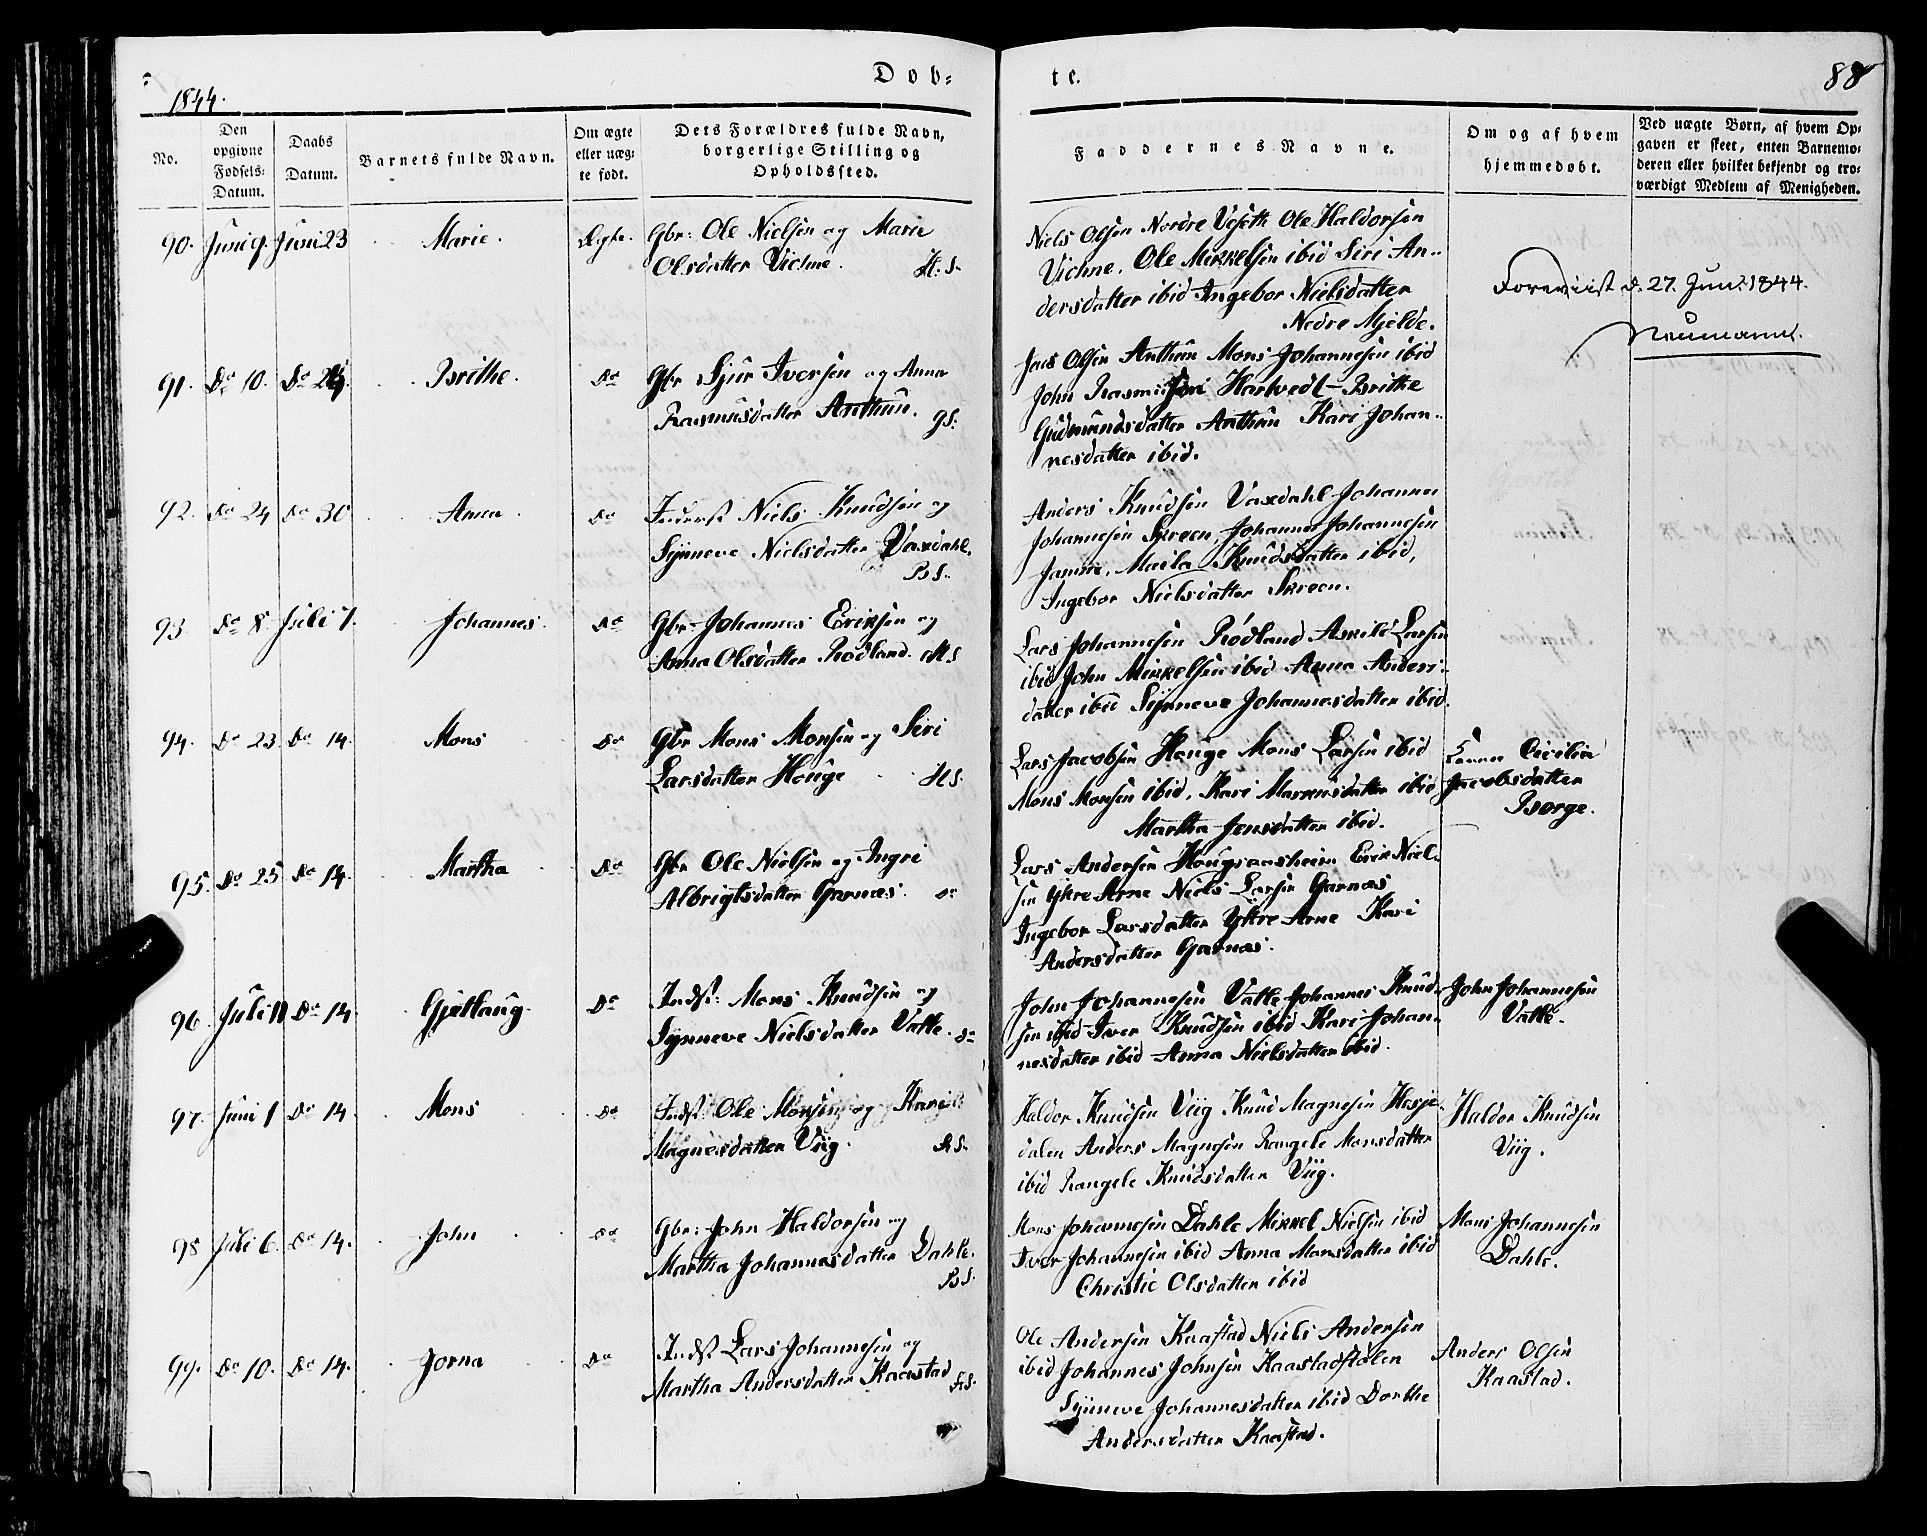 Døb=
te.
88
1844.
No.
Den opgivne Fødsels= Datum.
Daabs Datum.
Barnets fulde Navn.
Om ægte eller uæg= te født.
Dets Forældres fulde Navn, borgerlige Stilling og Opholdssted.
Faddernes Navne.
Om og af hvem hjemmedøbt.
Ved uægte Børn, af hvem Op= gaven er skeet, enten Barnemo= deren eller hvilket bekjendt og tro= værdigt Medlem af Menigheden.
90. Juni 9. Juni 23 Marie. Ægte. Gbr: Ole Nielsen og Marie
Olsdatter Vichne. H.S.
Niels Olsen Nordre Ole Haldorsen
Vichne, Ole Mikkelsen ibid Siri An-
dersdatter ibid Ingebor Nielsdatter
Nedre Mjelde.
Foreviist d. 27. Juni 1844.
Neumann.
91. Do 10. Do Brithe. Do Gbr Sjur Iversen og Anna
Rasmusdatter Anthun. gS:
Jens Olsen Anthun Mons Johannesen ibid
John Rasmussen Hartvedt Brithe
Gudmundsdatter Anthun Kari Johan-
nesdatter ibid.
92. Do 24 Do 30 Anna Do Inderst Niels Knudsen og
Synneve Nielsdatter Vaxdahl.
BS.
Anders Knudsen Vaxdahl Johannes
Johannesen Skreen, Johannes Johannesen
Jamne, Maila Knudsdatter ibid,
Ingebor Nielsdatter Skreen.
93. Do 8 Juli 7. Johannes. Do Gbr Johannes Eriksen og
Anna Olsdatter Rødland. HS
Lars Johannesen Rødland Askild Larsen
ibid John Mikkelsen ibid Anna Anders-
datter ibid Synneve Johannesdatter ibid.
94. Do 23 Do 14. Mons Do Gbr Mons Monsen og Siri
Larsdatter Houge HS.
Lars Jacobsen Houge Mons Larsen ibid
Mons Monsen ibid, Kari Markusdatter ibid
Martha Jensdatter ibid.
Cecilia
Jacobsdatter
Borge.
95. Do 25 Do 14. Martha Do Gbr Ole Nielsen og Ingri
Albrigtsdatter Garnæs. Do
Lars Andersen Hougsaasheim Erik Niel-
sen Yttre Arne Niels Larsen Garnæs
Ingebor Larsdatter Yttre Arne Kari
Andersdatter Garnæs.
96. Juli 11 Do 14. Gjøtlaug. Do Indst: Mons Knudsen og
Synneve Nielsdatter Valle. Do
John Johannesen Valle Johannes Knud-
sen ibid Iver Knudsen ibid Kari Johan-
nesdatter ibid Anna Nielsdatter ibid.
John Johannesen
Valle.
97. Juni 1 Do 14. Mons Do Indst: Ole Monsen og Kari
Magnesdatter Viig.
Haldor Knudsen Viig Knud Magnesen Hesje-
dalen Anders Magnesen Rangele Monsdatter
ibid Rangele Knudsdatter Viig.
Haldor Knudsen
Viig.
98 Juli 6. Do 14. John Do Gbr: John Haldorsen og
Martha Johannesdatter Dahle.
BS.
Mons Johannesen Dahle Mikkel Nielsen ibid
Iver Johannesen ibid Anna Monsdatter ibid
Christie Olsdatter ibid
Mons Johannesen
Dahle.
99. Do 10. Do 14. Jorna Do Indst Lars Johannesen og
Martha Andersdatter Kaastad
Ole Andersen Kaastad Niels Andersen
ibid Johannes Johnsen Kaastadstølen
Synneve Johannesdatter ibid Dorthe
Andersdatter Kaastad.
Anders Olsen
Kaastad.